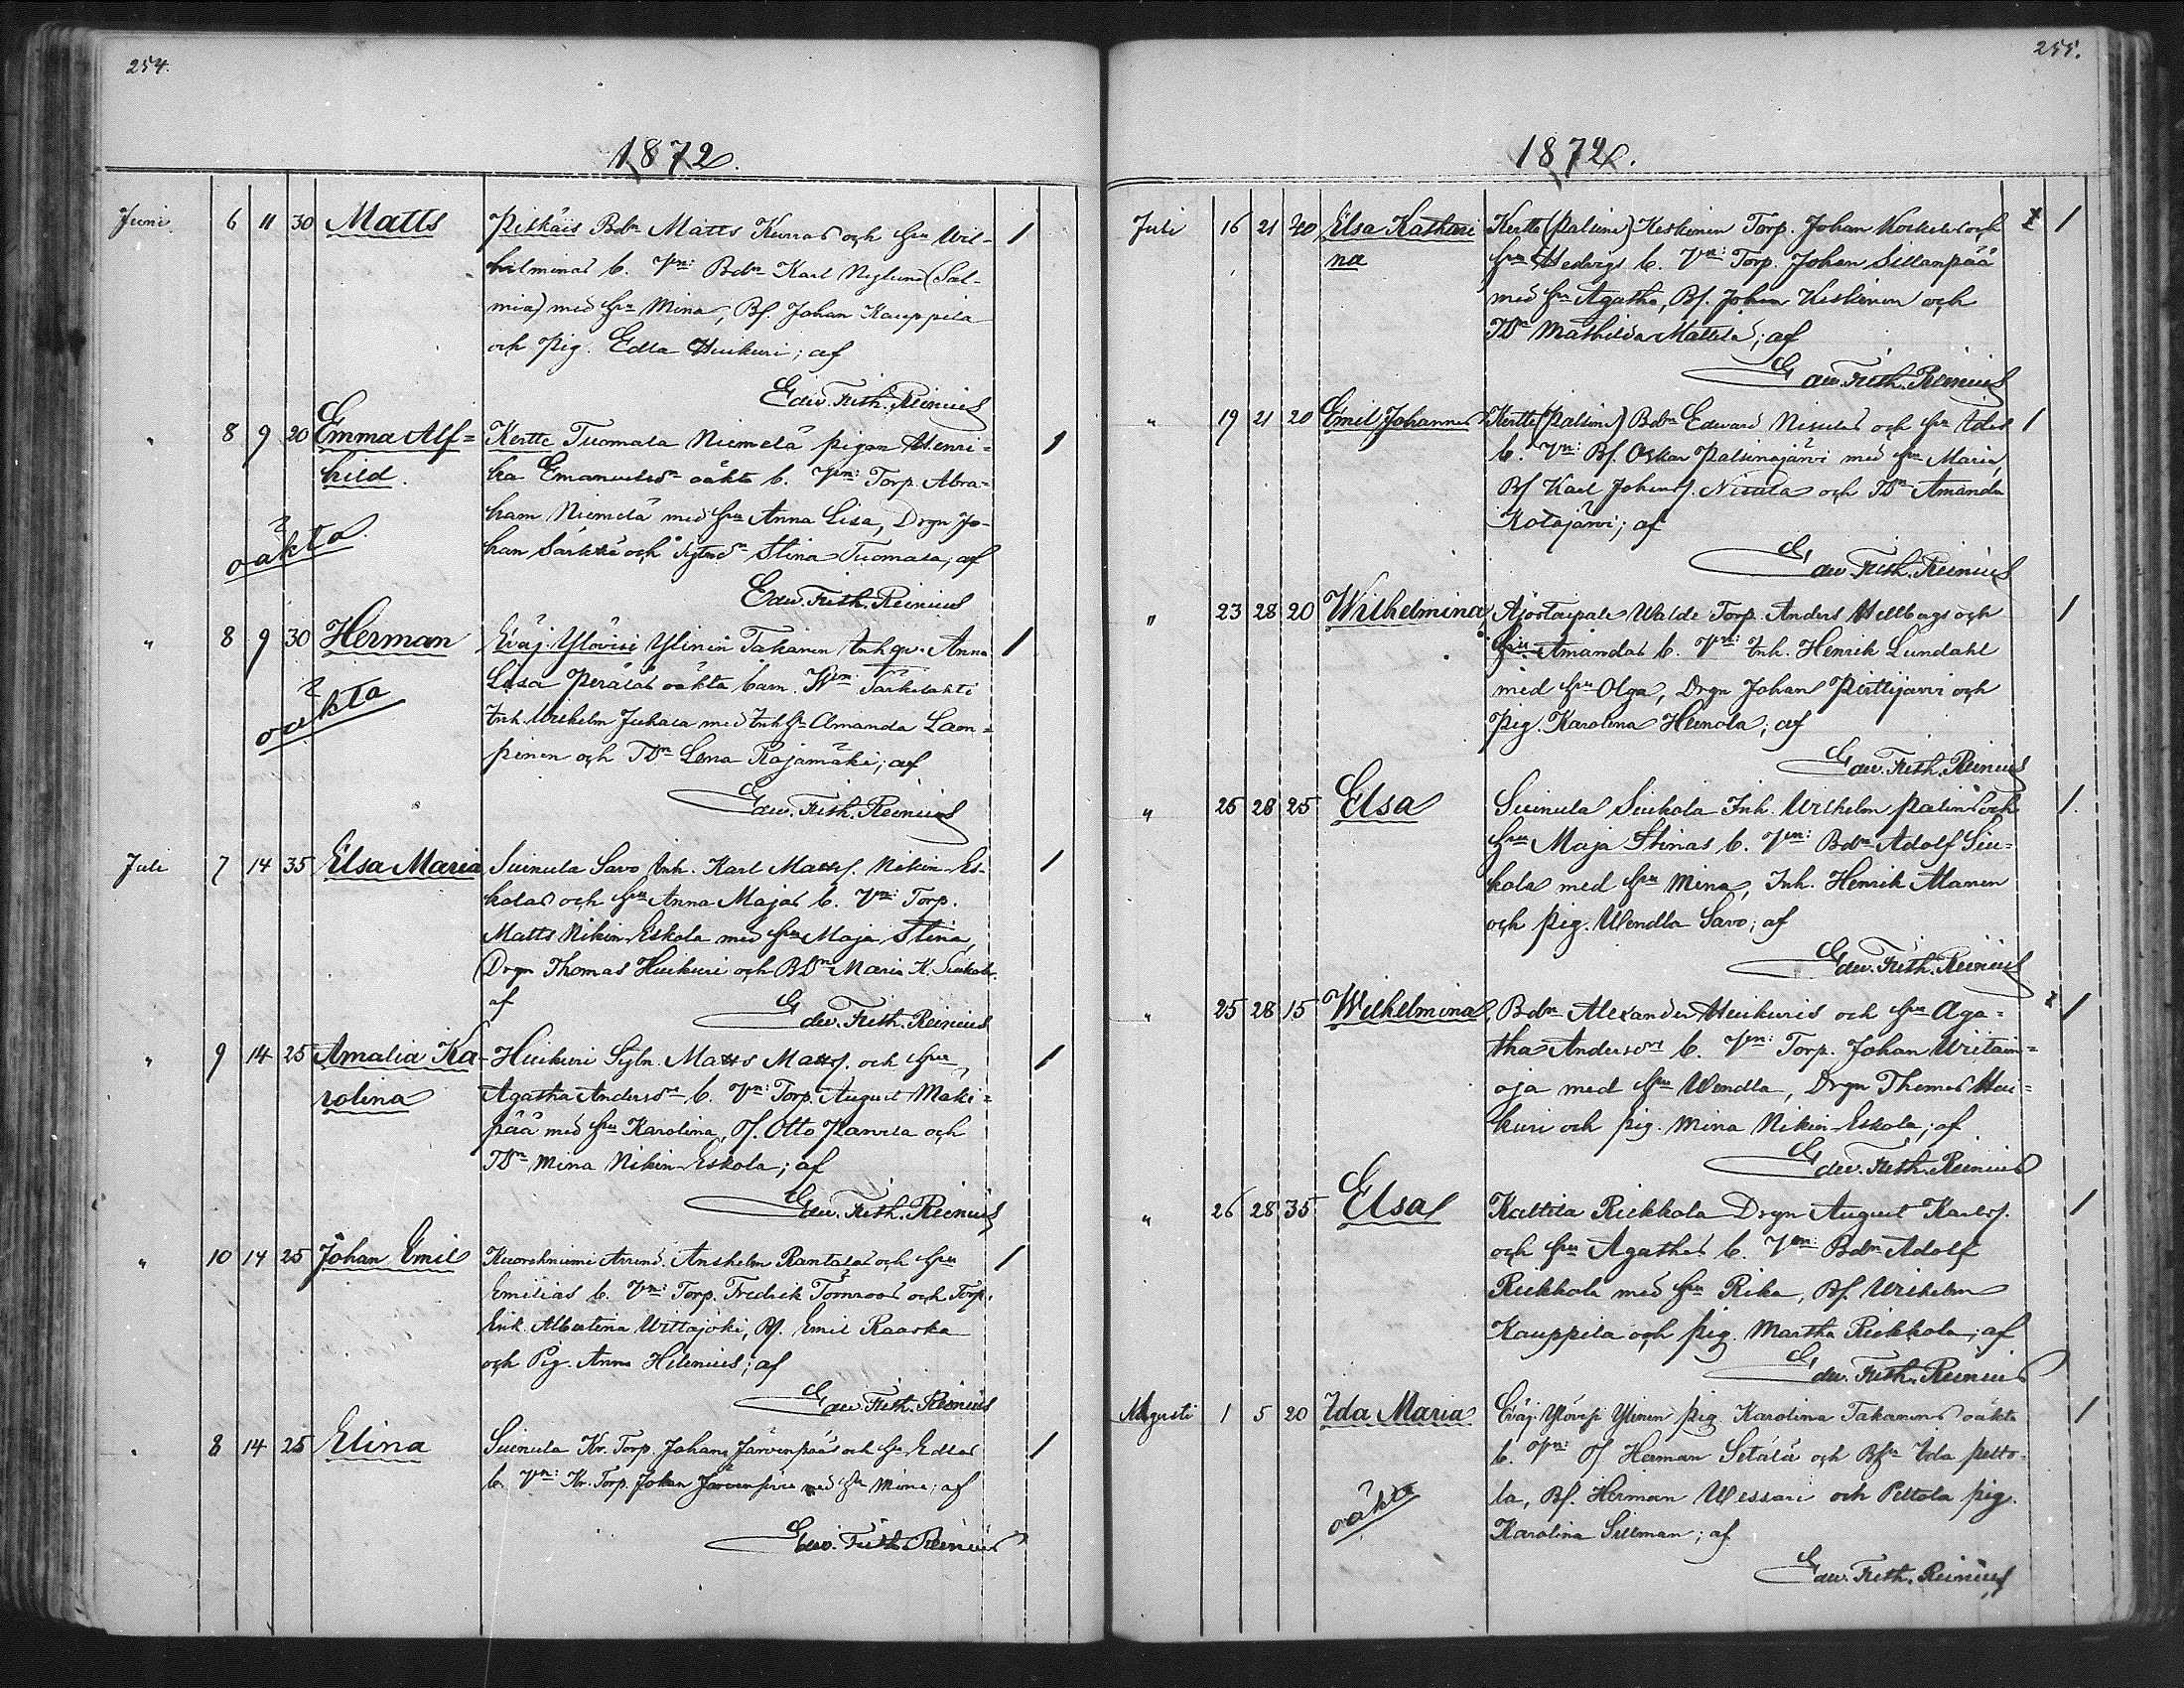 254.
1872.
Juni 6 11 30 Matts Pitkäis Bdn Matts Kurras och Hru Wil-
helminas b. Vn: Bdn Karl Neglund (Sal-
mia) med Hru Mina, Bs. Johan Kauppila
och Pig. Edla Huikuri; af
Edw. Frith. Reinius
" 8 9 20 Emma Alf= Kertte Tuomala Niemelä pigan Henri=
hild. ka Emanuelsdr oäkta b. Vn: Torp. Abra=
ham Niemelä med Hru Anna Lisa, Drgn Jo-
oäkta. han Särkkä och Stina Tuomala; af
Edw. Frith. Reinius
" 8 9 30 Herman Eväj. Ylövisi Ylinen Takanen Inhqv. Anna
Lisa Peräläs oäkta barn. Vn: Särkilahti
oäkta Inh. Wilhelm Juhala med Inh. Amanda Laon=
pinen och TDr Lena Rajamäki; af
Edw. Frith. Reinius
Juli 7 14 35 Elsa Maria Suinula Savo Inh. Karl Matts. Nikin-Es-
kolas och Hru Anna Majas b. Vn: Torp.
Matts Nikin-Eskola med Hru Maja Stina,
Drgn Thomas Huikuri och BDr Maria K. Siukola
af
Edw. Frith. Reinius
" 9 14 25 Amalia Ka- Huikuri Sytn. Matts Matts. och Hru
rolina Agatha Andersdr b. Vn: Torp. August Mäki=
pää med Hru Karolina, Otto Panula och
TDr Mina Nikin-Eskola; af
Edw. Frith. Reinius
" 10 14 25 Johan Emil Kuorehniemi Arrend. Anshelm Rantalas och Hru
Emilias b. Vn: Torp. Fredrik Törnroos och Torp.
Enk. Albertina Wittajoki, Bs. Emil Raaska
och Pig. Anna Helenius; af
Edw. Frith. Reinius
" 8 14 25 Elina Suinula Kr. Torp. Johan Järvenpääs och Hru Edlas
b. Vn: Kr. Torp. Johan Järvenpää med Hru Mina; af
Edw. Frith. Reinius
255.
1872.
Juli 16 21 40 Elsa Kathari Kertte (Palsina) Keskinen Torp. Johan och
na Hru Hedvigs b. Vn: Torp. Johan Sillanpää
med Hru Agatha, Bs. Johan Keskinen och
TDr Mathilda Mattila; af
Edw. Frith. Reinius
" 19 21 20 Emil Johannes Kertte (Palsina) Bdn Edward Nisulas och Hru Idas
b. Vn: Bs. Oskar Palsinajärvi med Hru Maria,
Bs Karl Johans. Nisula och TDr Amanda
Kotajärvi; af
Edw. Frith. Reinius
" 23 28 20 Wilhelmina Ajostaipale Walde Torp. Anders Hellbergs och
Hru Amandas b. Vn: Inh. Henrik Lundahl
med Hru Olga, Drgn Johan Pirttijärvi och
Pig. Karolina Heinola; af
Edw. Frith. Reinius
" 25 28 25 Elsa Suinula Siukola Inh. Wilhelm Palins och
Hru Maja Stinas b. Vn: Bdn Adolf Siu=
kola med Hru Mina, Inh. Henrik Alanen
och Pig. Wendla Savo; af
Edw. Frith. Reinius
" 25 28 15 Wilhelmina Bdn Alexander Huikuris och Hru Aga=
tha Andersdrs b. Vn: Torp. Johan Wiitain=
oja med Hru Wendla, Drgn Thomas Hui=
kuri och Pig. Mina Nikin-Eskola; af
Edw. Frith. Reinius
" 26 28 35 Elsa Kaltila Riekkola Drgn August Karls.
och Hru Agathas b. Vn: Bdn Adolf
Riekkola med Hru Rika, Bs. Wilhelm
Kauppila och Pig. Martha Riekkola; af
Edw. Frith. Reinius
Augusti 1 5 20 Ida Maria Eväj. Ylövisi Ylinen Pig. Karolina Takanens oäkta
b. Vn: Herman Setälä och Ida Pelto-
oäkta la, Bs. Herman Wessari och Peltola pig.
Karolina Sillman; af
Edw. Frith. Reinius